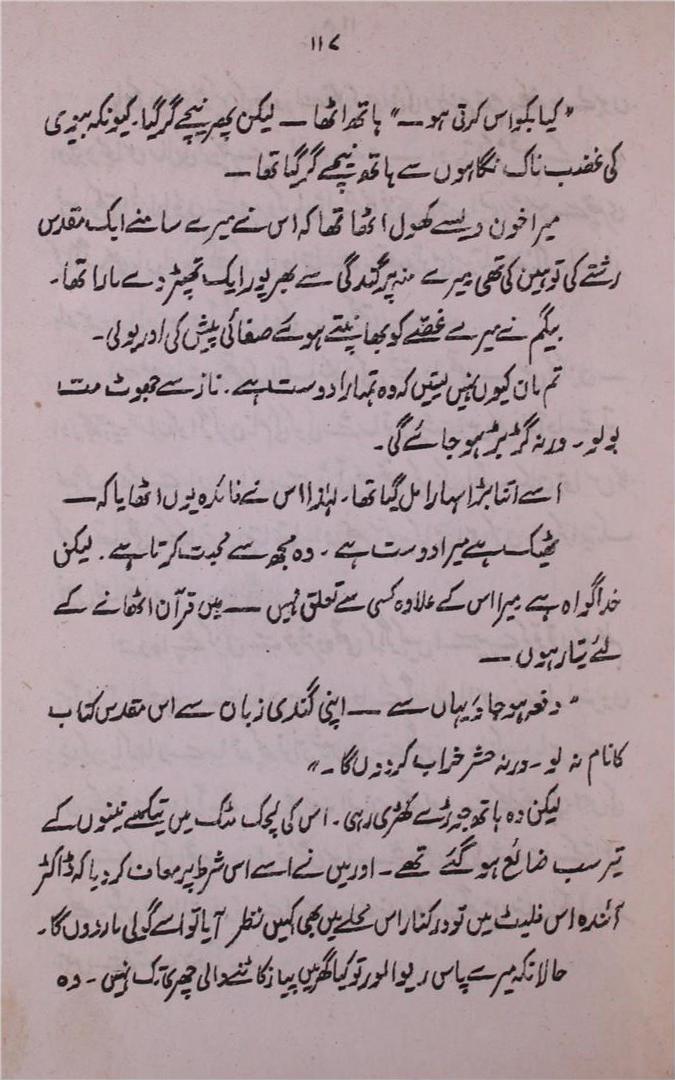 ۱۱۷
"کیا بکواس کرتی ہو—" ہاتھ اٹھا — لیکن پھر نیچے گر گیا۔ کیونکہ بیوی
کی غضب ناک نگاہوں سے ہاتھ نیچے گر گیا تھا —
میرا خون ویسے کھول اٹھا تھا کہ اس نے میرے سامنے ایک مقدس
رشتے کی توہین کی تھی میرے منہ پر گندگی سے بھرپور ایک تھپڑ دے مارا تھا۔
بیگم نے میرے غصّے کو بھانپتے ہوئے صفائی پیش کی اور بولی۔
تم مان کیوں نہیں لیتیں کہ وہ تمہارا دوست ہے۔ ناز سے جھوٹ مت
بولو۔ ورنہ گڑبڑ ہو جائے گی۔
اسے اتنا بڑا سہارا مل گیا تھا۔ لہٰذا اس نے فائدہ یوں اٹھایا کہ —
ٹھیک ہے میرا دوست ہے۔ وہ مجھ سے محبت کرتا ہے۔ لیکن
خدا گواہ ہے میرا اس کے علاوہ کسی سے تعلق نہیں — میں قرآن اٹھانے کے
لئے تیار ہوں —
"دفعہ ہو جاؤ یہاں سے — اپنی گندی زبان سے اس مقدس کتاب
کا نام نہ لو۔ ورنہ حشر خراب کر دوں گا۔"
لیکن وہ ہاتھ جوڑے کھڑی رہی۔ اس کی لچک مٹک میں تیکھے نینوں کے
تیر سب ضائع ہو گئے تھے۔ اور میں نے اسے اس شرط پر معاف کر دیا کہ ڈاکٹر
آئندہ اس فلیٹ میں تو درکنار اس محلے میں بھی کہیں نظر آیا تو اسے گولی مار دوں گا۔
حالانکہ میرے پاس ریوالور تو کیا گھر میں پیاز کاٹنے والی چھری تک نہیں۔ وہ